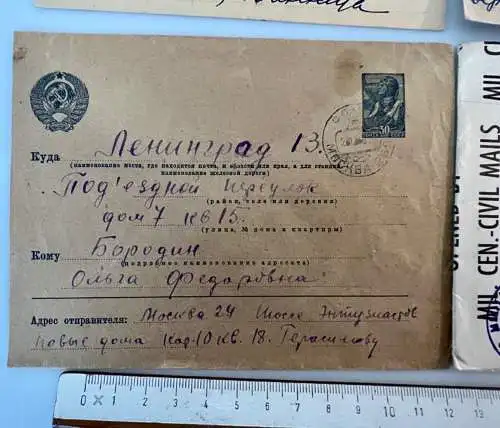 Винница
Ленинград 13.
Куда
(наименование места, где находится почта, и области или края, а для станции
наименование железной дороги)
Под'ездной переулок
(район, село или деревня)
дом 7 кв 15.
(улица, № дома и квартиры)
Кому Бородин
(подробное наименование адресата)
Ольга Федоровна
Адрес отправителя: Москва 24 Шоссе Энтузиастов
Новые дома Кор. 10 кв. 18. Герасимову
30
МОСКВА
OPENED BY
MIL. CEN.-CIVIL MAILS
0 1 2 3 4 5 6 7 8 9 10 11 12 13